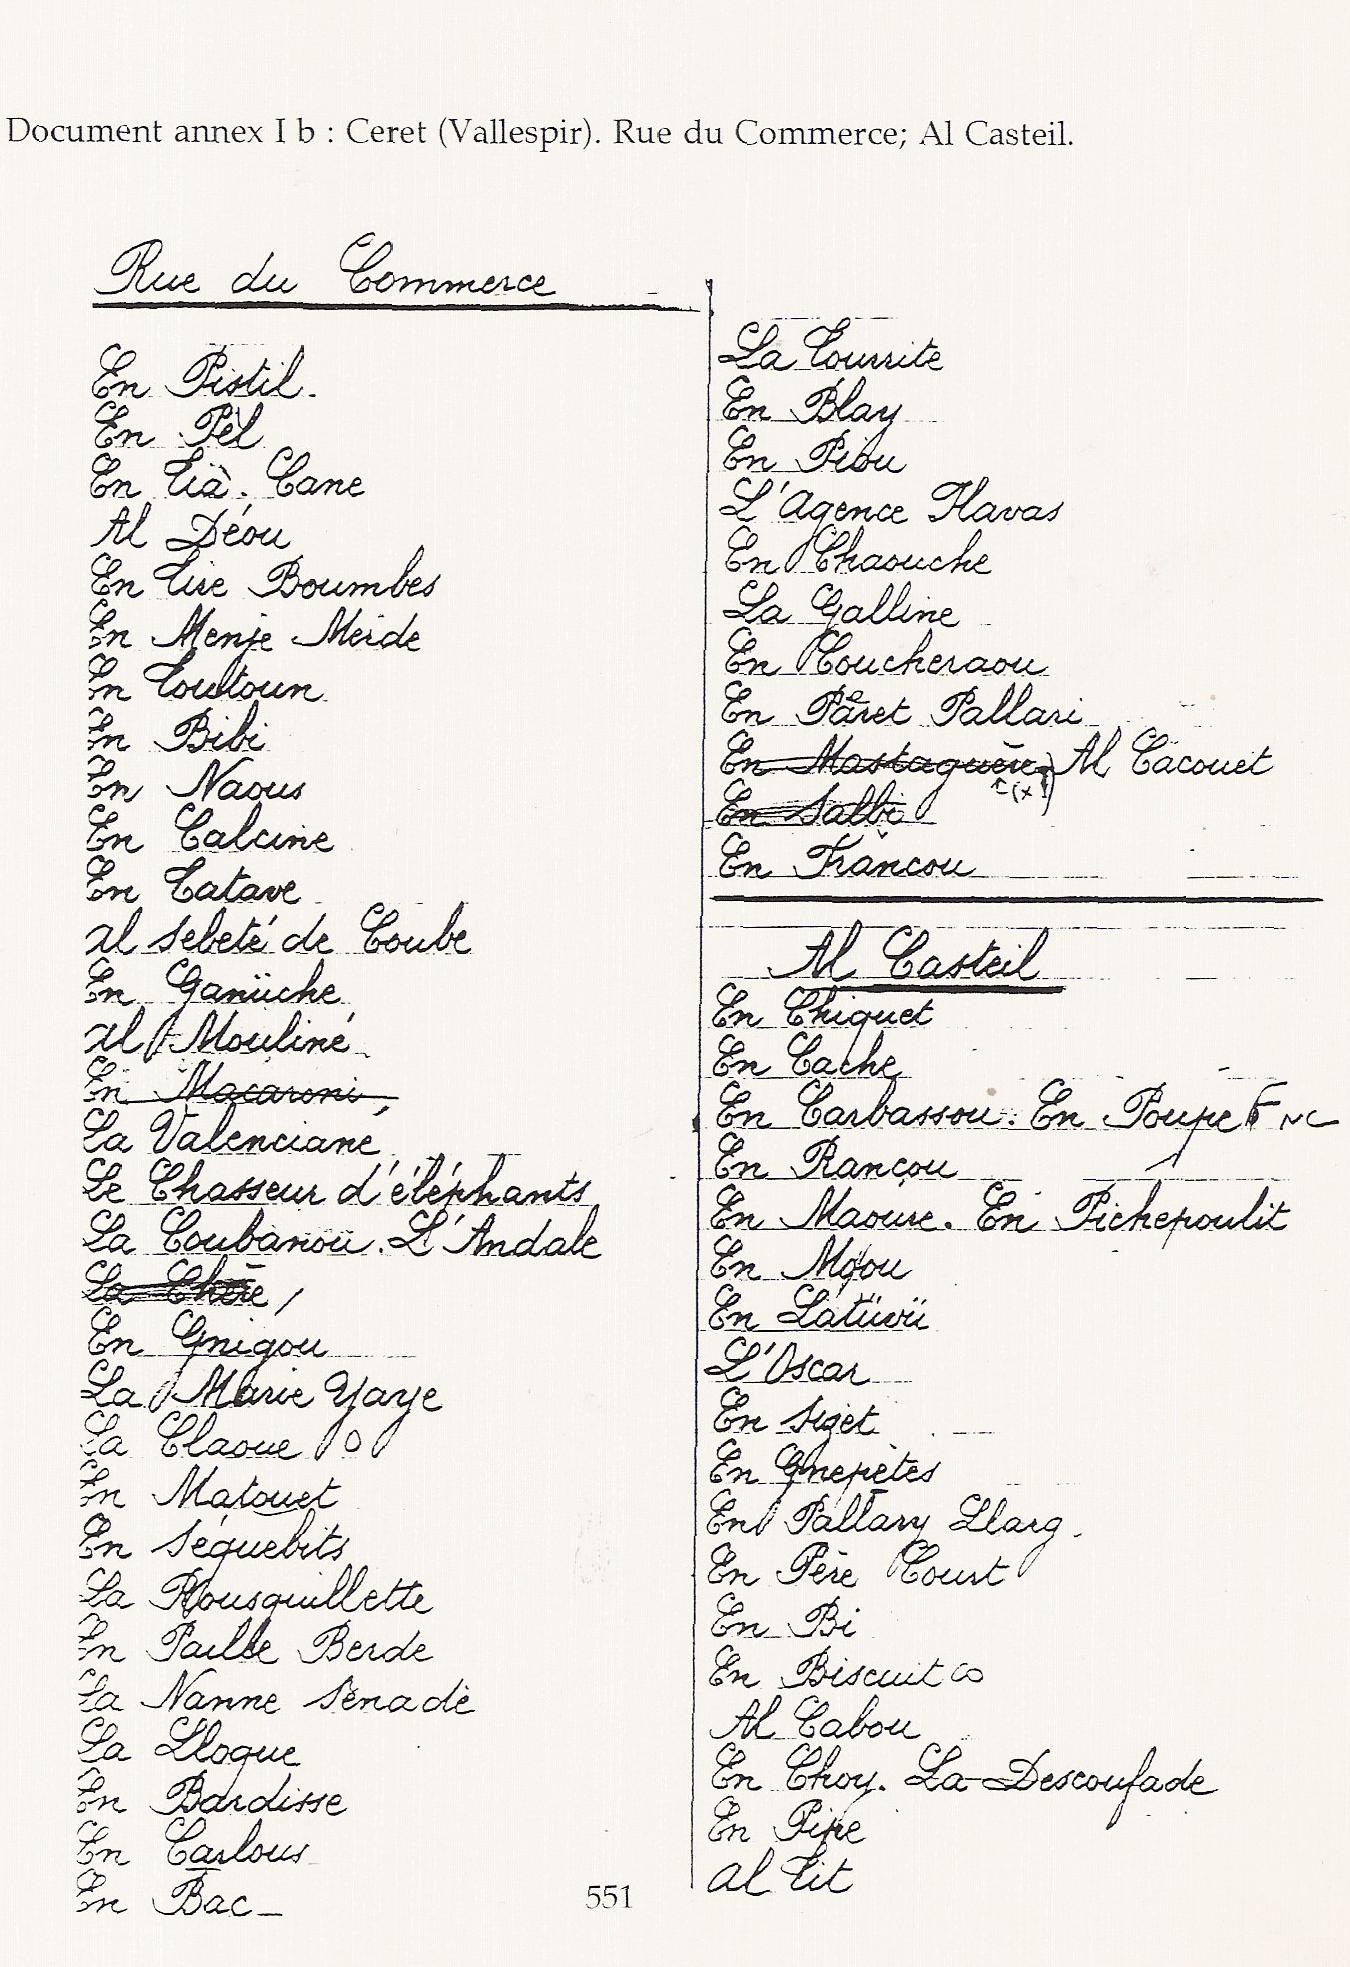 Document annex I b : Ceret (Vallespir). Rue du Commerce; Al Casteil.
Rue du Commerce
En Pistil.
En Pèl
En Tià. Cane
Al Déou
En Tire Boumbes
En Menje Merde
En Toutoun
En Bibi
En Naous
En Calcine
En Catave
Al Sebeté de Coube
En Ganüche
Al Mouliné
En Macaroni
La Valenciane
Le Chasseur d'éléphants
La Coubanou. L'Andale
La Chère
En Gnigou
La Marie Yaye
La Claoue
En Matouet
En Séguebits
La Rousquillette
En Paille Berde
La Nanne Senade
La Llogue
En Bardisse
En Carlous
En Bac
La Tourrite
En Blay
En Piou
L'Agence Havas
En Chaouche
La Galline
En Coucheraou
En Paret Pallari
En Mastaguère Al Cacouet
En Salbi
En Francou
Al Casteil
En Chiquet
En Cache
En Carbassou. En Poupe
En Rancou
En Maoure. En Pichepoulit
En Mojou
En Latüvü
L'Oscar
En Siset
En Gnepetes
En Pallary Llarg.
En Père Court
En Bi
En Biscuit
Al Cabou
En Choy. La Descoufade
En Pipe
Al Tit
551